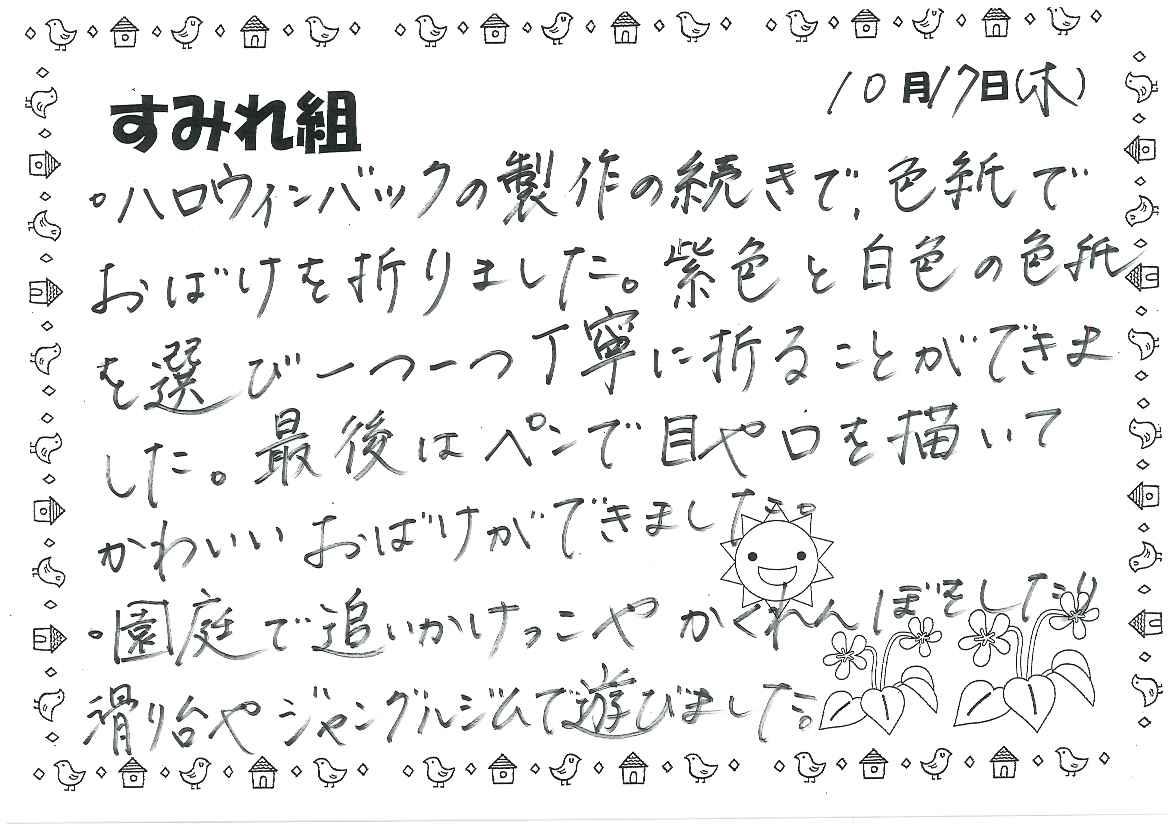 10月17日(木)
すみれ組
•ハロウィンバックの製作の続きで、色紙で
おばけを折りました。紫色と白色の色紙
を選び一つ一つ丁寧に折ることができま
した。最後はペンで目や口を描いて
かわいいおばけができました。
•園庭で追いかけっこやかくれんぼをしたり
滑り台やジャングルジムで遊びました。